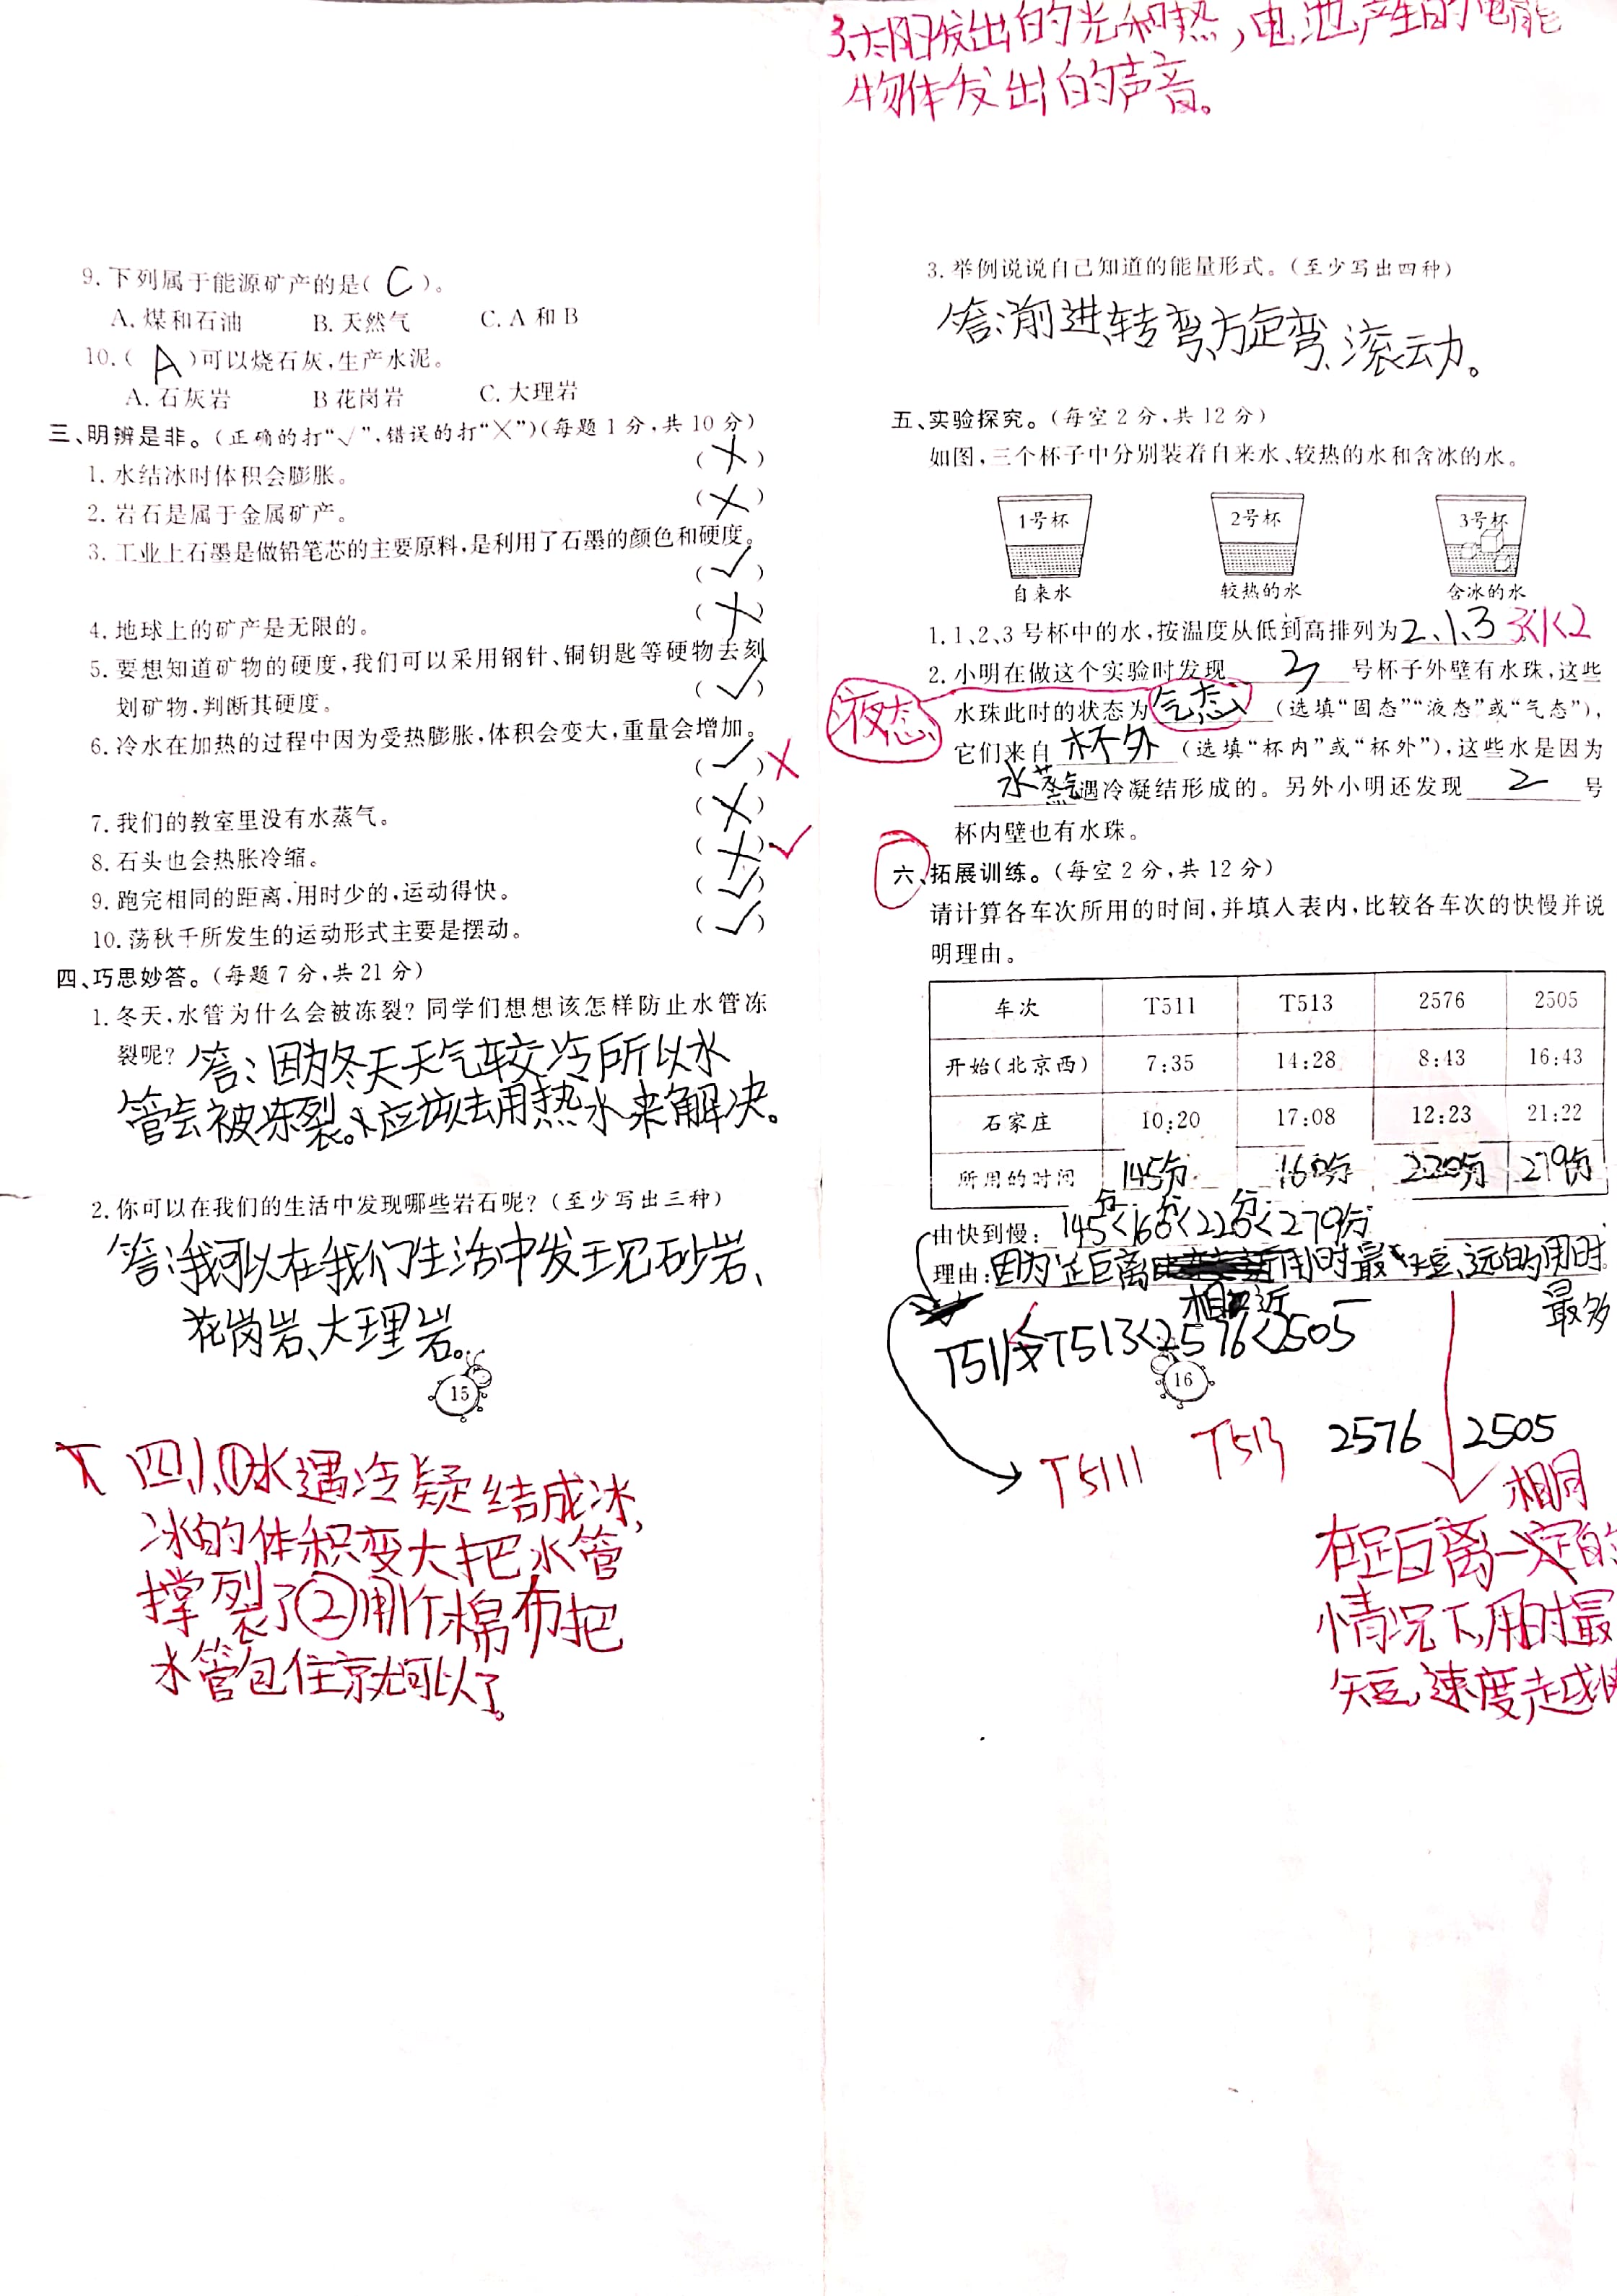 9.下列属于能源矿产的是( C )。
A.煤和石油 B.天然气 C.A和B
10.( A )可以烧石灰,生产水泥。
A.石灰岩 B花岗岩 C.大理岩
三、明辨是非。(正确的打“√”,错误的打“×”)(每题1分,共10分)
1.水结冰时体积会膨胀。 (×)
2.岩石是属于金属矿产。 (×)
3.工业上石墨是做铅笔芯的主要原料,是利用了石墨的颜色和硬度。
(√)
4.地球上的矿产是无限的。 (×)
5.要想知道矿物的硬度,我们可以采用钢针、铜钥匙等硬物去刻
划矿物,判断其硬度。 (√)
6.冷水在加热的过程中因为受热膨胀,体积会变大,重量会增加。
(√)×
7.我们的教室里没有水蒸气。 (×)
8.石头也会热胀冷缩。 (×)√
9.跑完相同的距离,用时少的,运动得快。 (√)
10.荡秋千所发生的运动形式主要是摆动。 (√)
四、巧思妙答。(每题7分,共21分)
1.冬天,水管为什么会被冻裂?同学们想想该怎样防止水管冻
裂呢? 答:因为冬天天气较冷所以水
管会被冻裂。应该去用热水来解决。
2.你可以在我们的生活中发现哪些岩石呢?(至少写出三种)
答:我可以在我们生活中发现砂岩、
花岗岩、大理岩。
15
四、1、①水遇冷凝结成冰,
冰的体积变大把水管
撑裂了②用个棉布把
水管包住就可以了。
3、太阳发出的光和热,电池产生的电能
物体发出的声音。
3.举例说说自己知道的能量形式。(至少写出四种)
答:前进、转弯、方定弯、滚动。
五、实验探究。(每空2分,共12分)
如图,三个杯子中分别装着自来水、较热的水和含冰的水。
1号杯 2号杯 3号杯
自来水 较热的水 含冰的水
1.1、2、3号杯中的水,按温度从低到高排列为2、1、3 3<1<2
2.小明在做这个实验时发现 3 号杯子外壁有水珠,这些
液态 水珠此时的状态为 气态 (选填“固态”“液态”或“气态”),
它们来自 杯外 (选填“杯内”或“杯外”),这些水是因为
水蒸气遇冷凝结形成的。另外小明还发现 2 号
杯内壁也有水珠。
六、拓展训练。(每空2分,共12分)
请计算各车次所用的时间,并填入表内,比较各车次的快慢并说
明理由。
车次 T511 T513 2576 2505
开始(北京西) 7:35 14:28 8:43 16:43
石家庄 10:20 17:08 12:23 21:22
所用的时间 145分 160分 220分 279分
由快到慢: 145分<160分<220分<279分
理由:因为距离相近用时最短、远的用时
最多
T511<T513<2576<2505
16
T5111 T513 2576 2505
相同
在距离一定的
情况下,用时最
短,速度越快